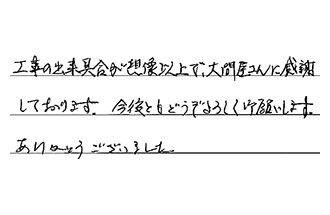 工事の出来具合が想像以上で、大問屋さんに感謝
しております。今後ともどうぞよろしく御願いします。
ありがとうございました。